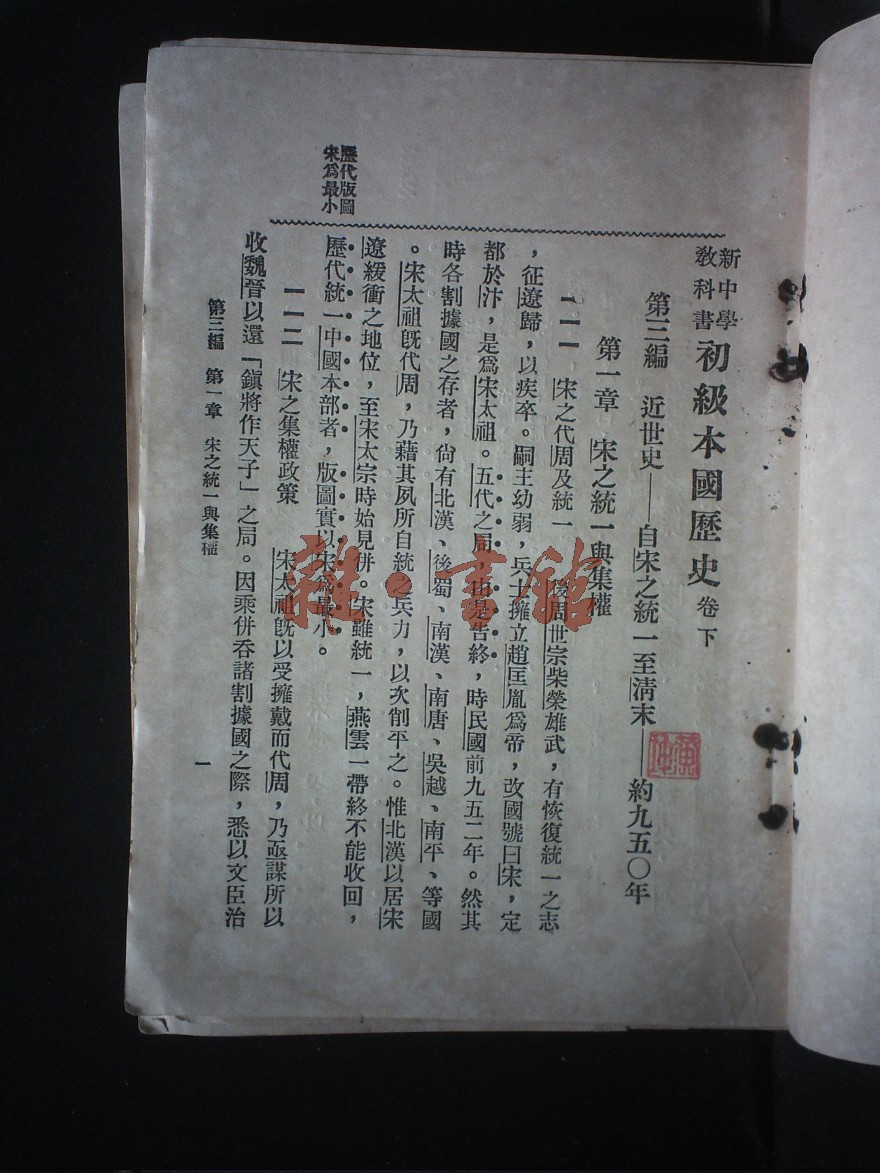 新中學
教科書
初級本國歷史 卷下
第三編　近世史——自宋之統一至清末——約九五〇年
第一章　宋之統一與集權
一一一　宋之代周及統一　後周世宗柴榮雄武，有恢復統一之志
，征遼歸，以疾卒。嗣主幼弱，兵士擁立趙匡胤爲帝，改國號曰宋，定
都於汴，是爲宋太祖。五代之局，由是告終，時民國前九五二年。然其
時各割據國之存者，尙有北漢、後蜀、南漢、南唐、吳越、南平、等國
。宋太祖旣代周，乃藉其夙所自統之兵力，以次削平之。惟北漢以居宋
遼緩衝之地位，至宋太宗時始見併。宋雖統一，燕雲一帶終不能收回，
歷代統一中國本部者，版圖實以宋爲最小。
歷代版圖
宋爲最小
一一二　宋之集權政策　宋太祖旣以受擁戴而代周，乃亟謀所以
收魏晉以還「鎭將作天子」之局。因乘併吞諸割據國之際，悉以文臣治
第三編　第一章　宋之統一與集權
一
雜·書館